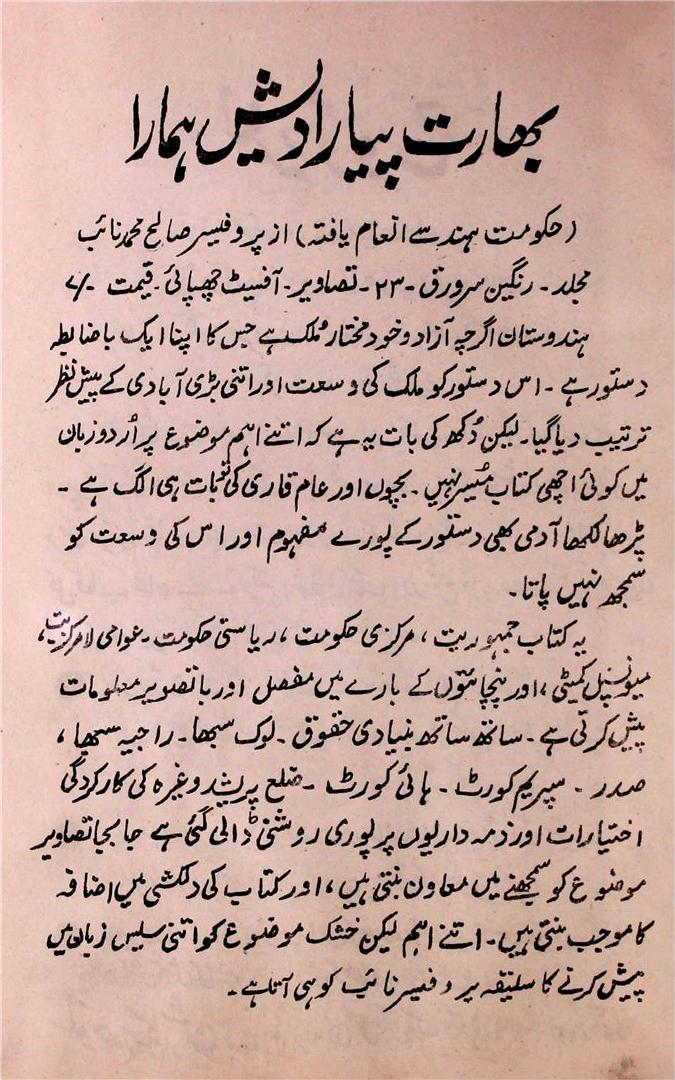 بھارت پیارا دیش ہمارا
(حکومت ہند سے انعام یافتہ) از پروفیسر صالح محمد نائب
مجلد ۔ رنگین سرورق ۔ ۲۳ ۔ تصاویر ۔ آفسیٹ چھپائی ۔ قیمت ۷/۰
ہندوستان اگرچہ آزاد و خود مختار مُلک ہے جس کا اپنا ایک باضابطہ
دستور ہے ۔ اس دستور کو ملک کی وسعت اور اتنی بڑی آبادی کے پیش نظر
ترتیب دیا گیا ۔ لیکن دُکھ کی بات یہ ہے کہ اتنے اہم موضوع پر اُردو زبان
میں کوئی اچھی کتاب میُسر نہیں ۔ بچوں اور عام قاری کی تو بات ہی الگ ہے ۔
پڑھا لکھا آدمی بھی دستور کے پورے مفہوم اور اس کی وسعت کو
سمجھ نہیں پاتا ۔
یہ کتاب جمہوریت ، مرکزی حکومت ، ریاستی حکومت ۔ عوامی لامرکزیت ،
میونسپل کمیٹی ، اور پنچائتوں کے بارے میں مفصل اور باتصویر معلومات
پیش کرتی ہے ۔ ساتھ ساتھ بنیادی حقوق ۔ لوک سبھا ۔ راجیہ سبھا ،
صدر ۔ سپریم کورٹ ۔ ہائی کورٹ ۔ ضلع پریشد وغیرہ کی کارکردگی
اختیارات اور ذمہ داریوں پر پوری روشنی ڈالی گئی ہے جابجا تصاویر
موضوع کو سمجھنے میں معاون بنتی ہیں ، اور کتاب کی دلکشی میں اضافہ
کا موجب بنتی ہیں ۔ اتنے اہم لیکن خشک موضوع کو اتنی سلیس زبان میں
پیش کرنے کا سلیقہ پروفیسر نائب کو ہی آتا ہے ۔